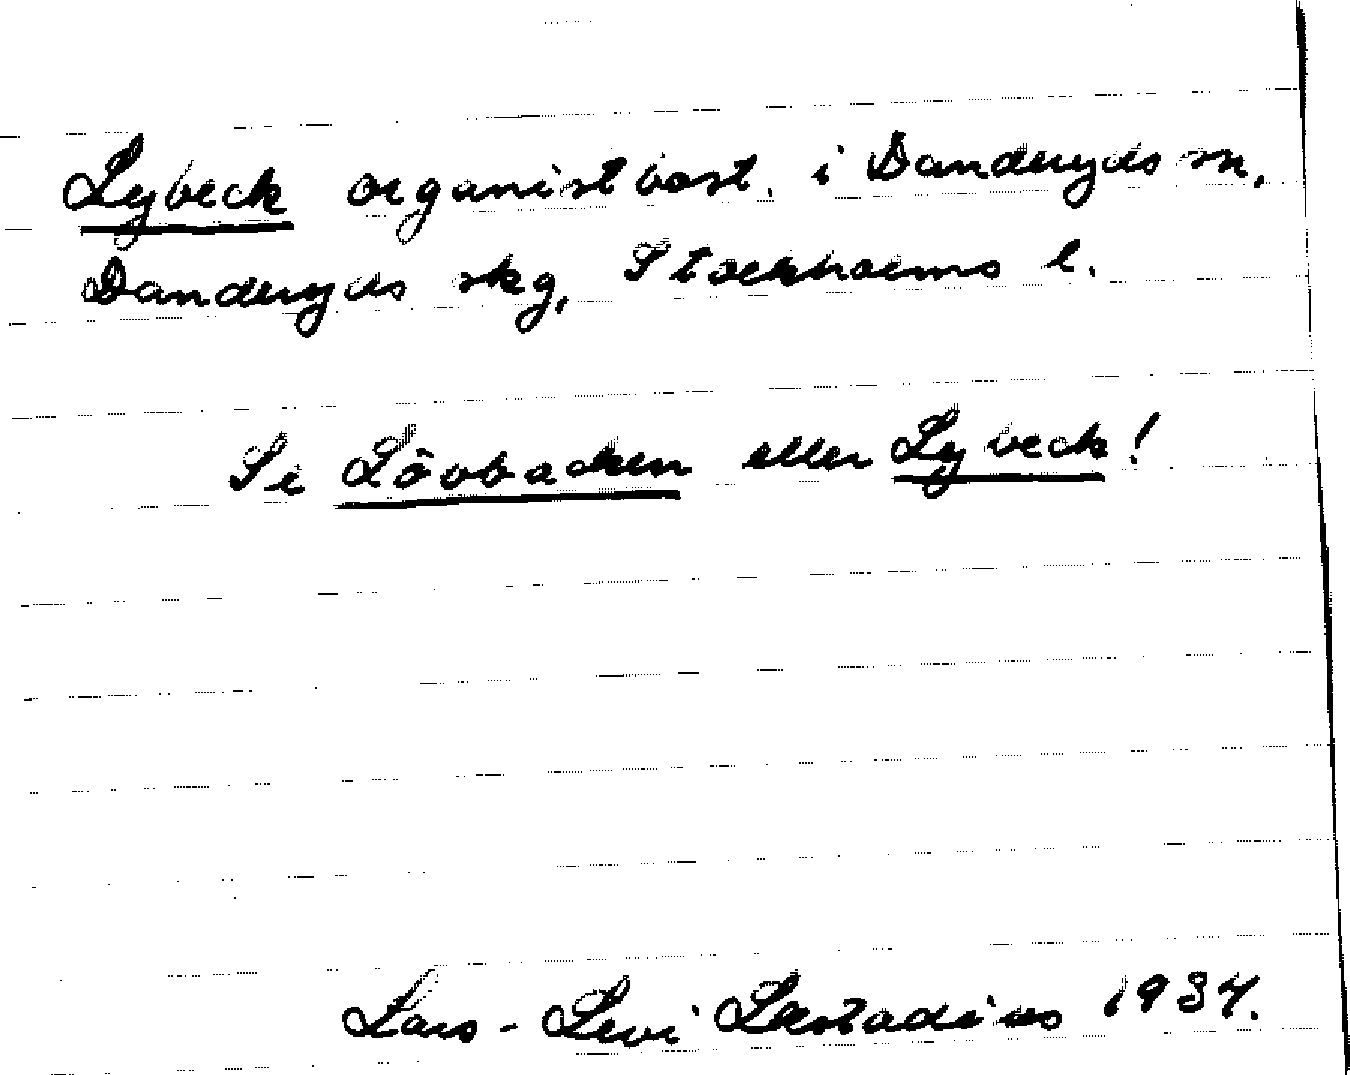 Lybeck organistbost. i Danderyds sn,
Danderyds skg, Stockholms l.
Se Lövbacken eller Lybeck!
Lars-Levi Læstadius 1934.